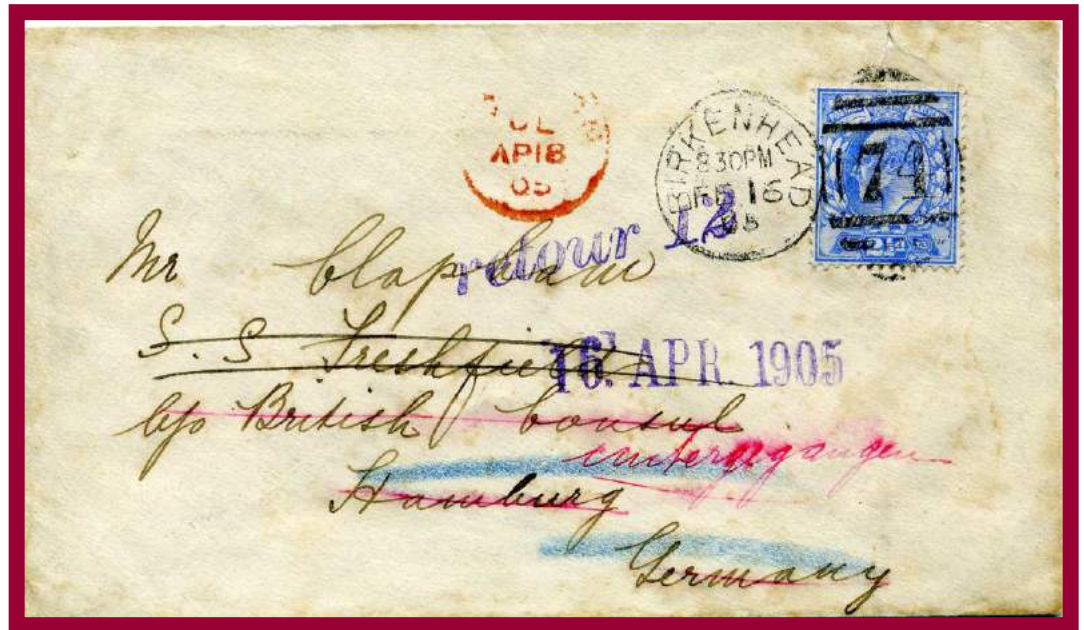 BIRKENHEAD
8 30 PM
FE 16
05
74
AP 18
05
retour 12
Mr Clapham
S. S Freshfield
16. APR. 1905
c/o British Consul
untergegangen
Hamburg
Germany